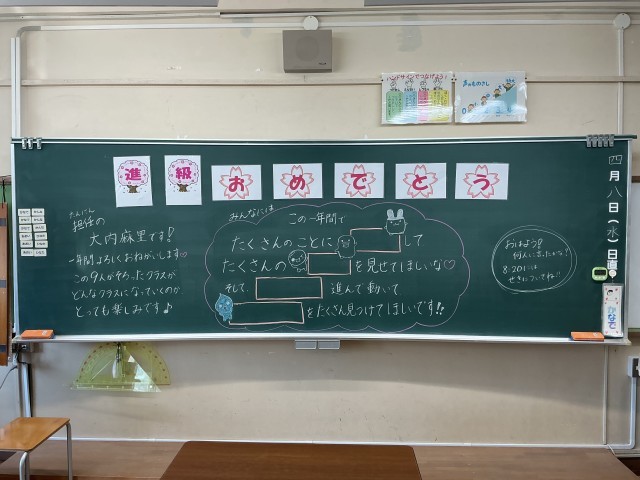 ハンドサインでつなげよう!
声のものさし
進級おめでとう
四月八日(水)
日直
かなで
たんにん
担任の
大内麻里です!
一年間よろしくおねがいします♡
この9人が
クラスが
どんなクラスになっていくのか
とっても楽しみです♪
みんなには
この一年間で
たくさんのことに して
たくさんの を見せてほしいな♡
そして、 進んで動いて
をたくさん見つけてほしいです!!
おはよう!
何人に言ったかな?
8:20には
せきについてね!!